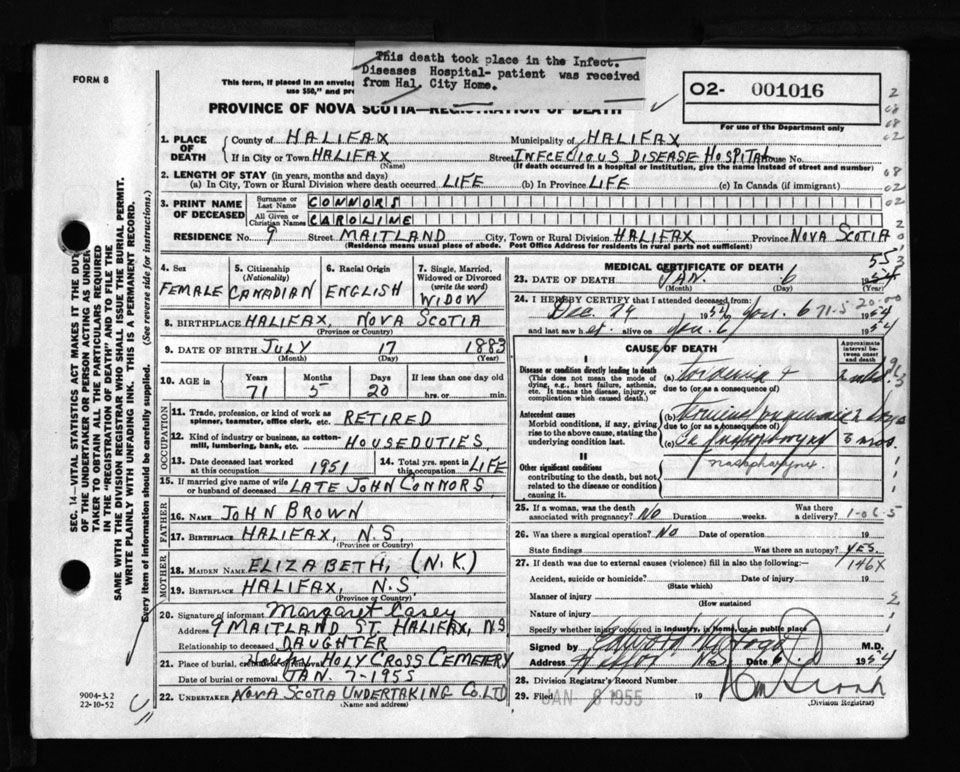 This death took place in the Infect.
Diseases Hospital- patient was received
from Hal. City Home.
FORM 8
This form, if placed in an envelop
use $50," and pr
PROVINCE OF NOVA SCOTIA—REGISTRATION OF DEATH
O2- 001016
For use of the Department only
1. PLACE OF DEATH
County of HALIFAX Municipality of HALIFAX
If in City or Town HALIFAX Street INFCECIOUS DISEASE HOSPITAL House No.
(Name) (If death occurred in a hospital or institution, give the name instead of street and number)
2. LENGTH OF STAY (in years, months and days)
(a) In City, Town or Rural Division where death occurred LIFE (b) In Province LIFE (c) In Canada (if immigrant)
3. PRINT NAME OF DECEASED
Surname or Last Name CONNORS
All Given or Christian Names CAROLINE
RESIDENCE No. 9 Street MAITLAND City, Town or Rural Division HALIFAX Province NOVA SCOTIA
(Residence means usual place of abode. Post Office Address for residents in rural parts not sufficient)
4. Sex FEMALE
5. Citizenship (Nationality) CANADIAN
6. Racial Origin ENGLISH
7. Single, Married, Widowed or Divorced (write the word) WIDOW
8. BIRTHPLACE HALIFAX, NOVA SCOTIA
(Province or Country)
9. DATE OF BIRTH JULY 17 1883
(Month) (Day) (Year)
10. AGE in Years 71 Months 5 Days 20 If less than one day old hrs. or min.
OCCUPATION
11. Trade, profession, or kind of work as spinner, teamster, office clerk, etc. RETIRED
12. Kind of industry or business, as cotton-mill, lumbering, bank, etc. HOUSEDUTIES
13. Date deceased last worked at this occupation 1951
14. Total yrs. spent in this occupation LIFE
15. If married give name of wife or husband of deceased LATE JOHN CONNORS
FATHER
16. NAME JOHN BROWN
17. BIRTHPLACE HALIFAX, N.S.
(Province or Country)
MOTHER
18. MAIDEN NAME ELIZABETH, (N.K.)
19. BIRTHPLACE HALIFAX, N.S
(Province or Country)
20. Signature of informant Margaret Casey
Address 9 MAITLAND ST. HALIFAX, N.S
Relationship to deceased DAUGHTER
21. Place of burial, cremation or removal HOLY CROSS CEMETERY
Date of burial or removal JAN. 7-1955
22. UNDERTAKER NOVA SCOTIA UNDERTAKING CO. LTD
(Name and address)
MEDICAL CERTIFICATE OF DEATH
23. DATE OF DEATH JAN. 6 1954 55
(Month) (Day) (Year)
24. I HEREBY CERTIFY that I attended deceased from:
Dec. 29 1954 to Jan. 6 1954
and last saw her alive on Jan. 6 1954
CAUSE OF DEATH
Approximate interval between onset and death
I
Disease or condition directly leading to death
(This does not mean the mode of dying, e.g., heart failure, asthenia, etc. It means the disease, injury, or complication which caused death.)
(a)
due to (or as a consequence of)
Antecedent causes
Morbid conditions, if any, giving rise to the above cause, stating the underlying condition last.
(b)
due to (or as a consequence of)
(c) Ca nasopharynx 3 mos.
nasopharynx
II
Other significant conditions
contributing to the death, but not related to the disease or condition causing it.
25. If a woman, was the death associated with pregnancy? NO Duration weeks. Was there a delivery?
26. Was there a surgical operation? NO Date of operation 19
State findings Was there an autopsy? YES
146X
27. If death was due to external causes (violence) fill in also the following:—
Accident, suicide or homicide? Date of injury 19
(State which)
Manner of injury
(How sustained
Nature of injury
Specify whether injury occurred in industry, in home, or in public place
Signed by M.D.
Address Halifax N.S. Date 6 1954
28. Division Registrar's Record Number
29. Filed JAN 8 1955 19
(Division Registrar)
SEC. 14—VITAL STATISTICS ACT MAKES IT THE DUTY
OF THE UNDERTAKER OR PERSON ACTING AS UNDER-
TAKER TO OBTAIN ALL THE PARTICULARS REQUIRED
IN THE "REGISTRATION OF DEATH" AND TO FILE THE
SAME WITH THE DIVISION REGISTRAR WHO SHALL ISSUE THE BURIAL PERMIT.
WRITE PLAINLY WITH UNFADING INK. THIS IS A PERMANENT RECORD.
Every item of information should be carefully supplied. (See reverse side for instructions.)
9004-3.2
22-10-52